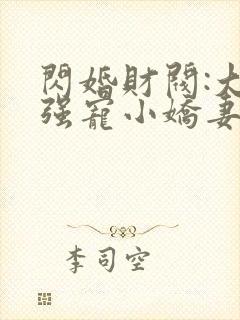 閃婚財閥:大
强寵小嬌妻
李司空